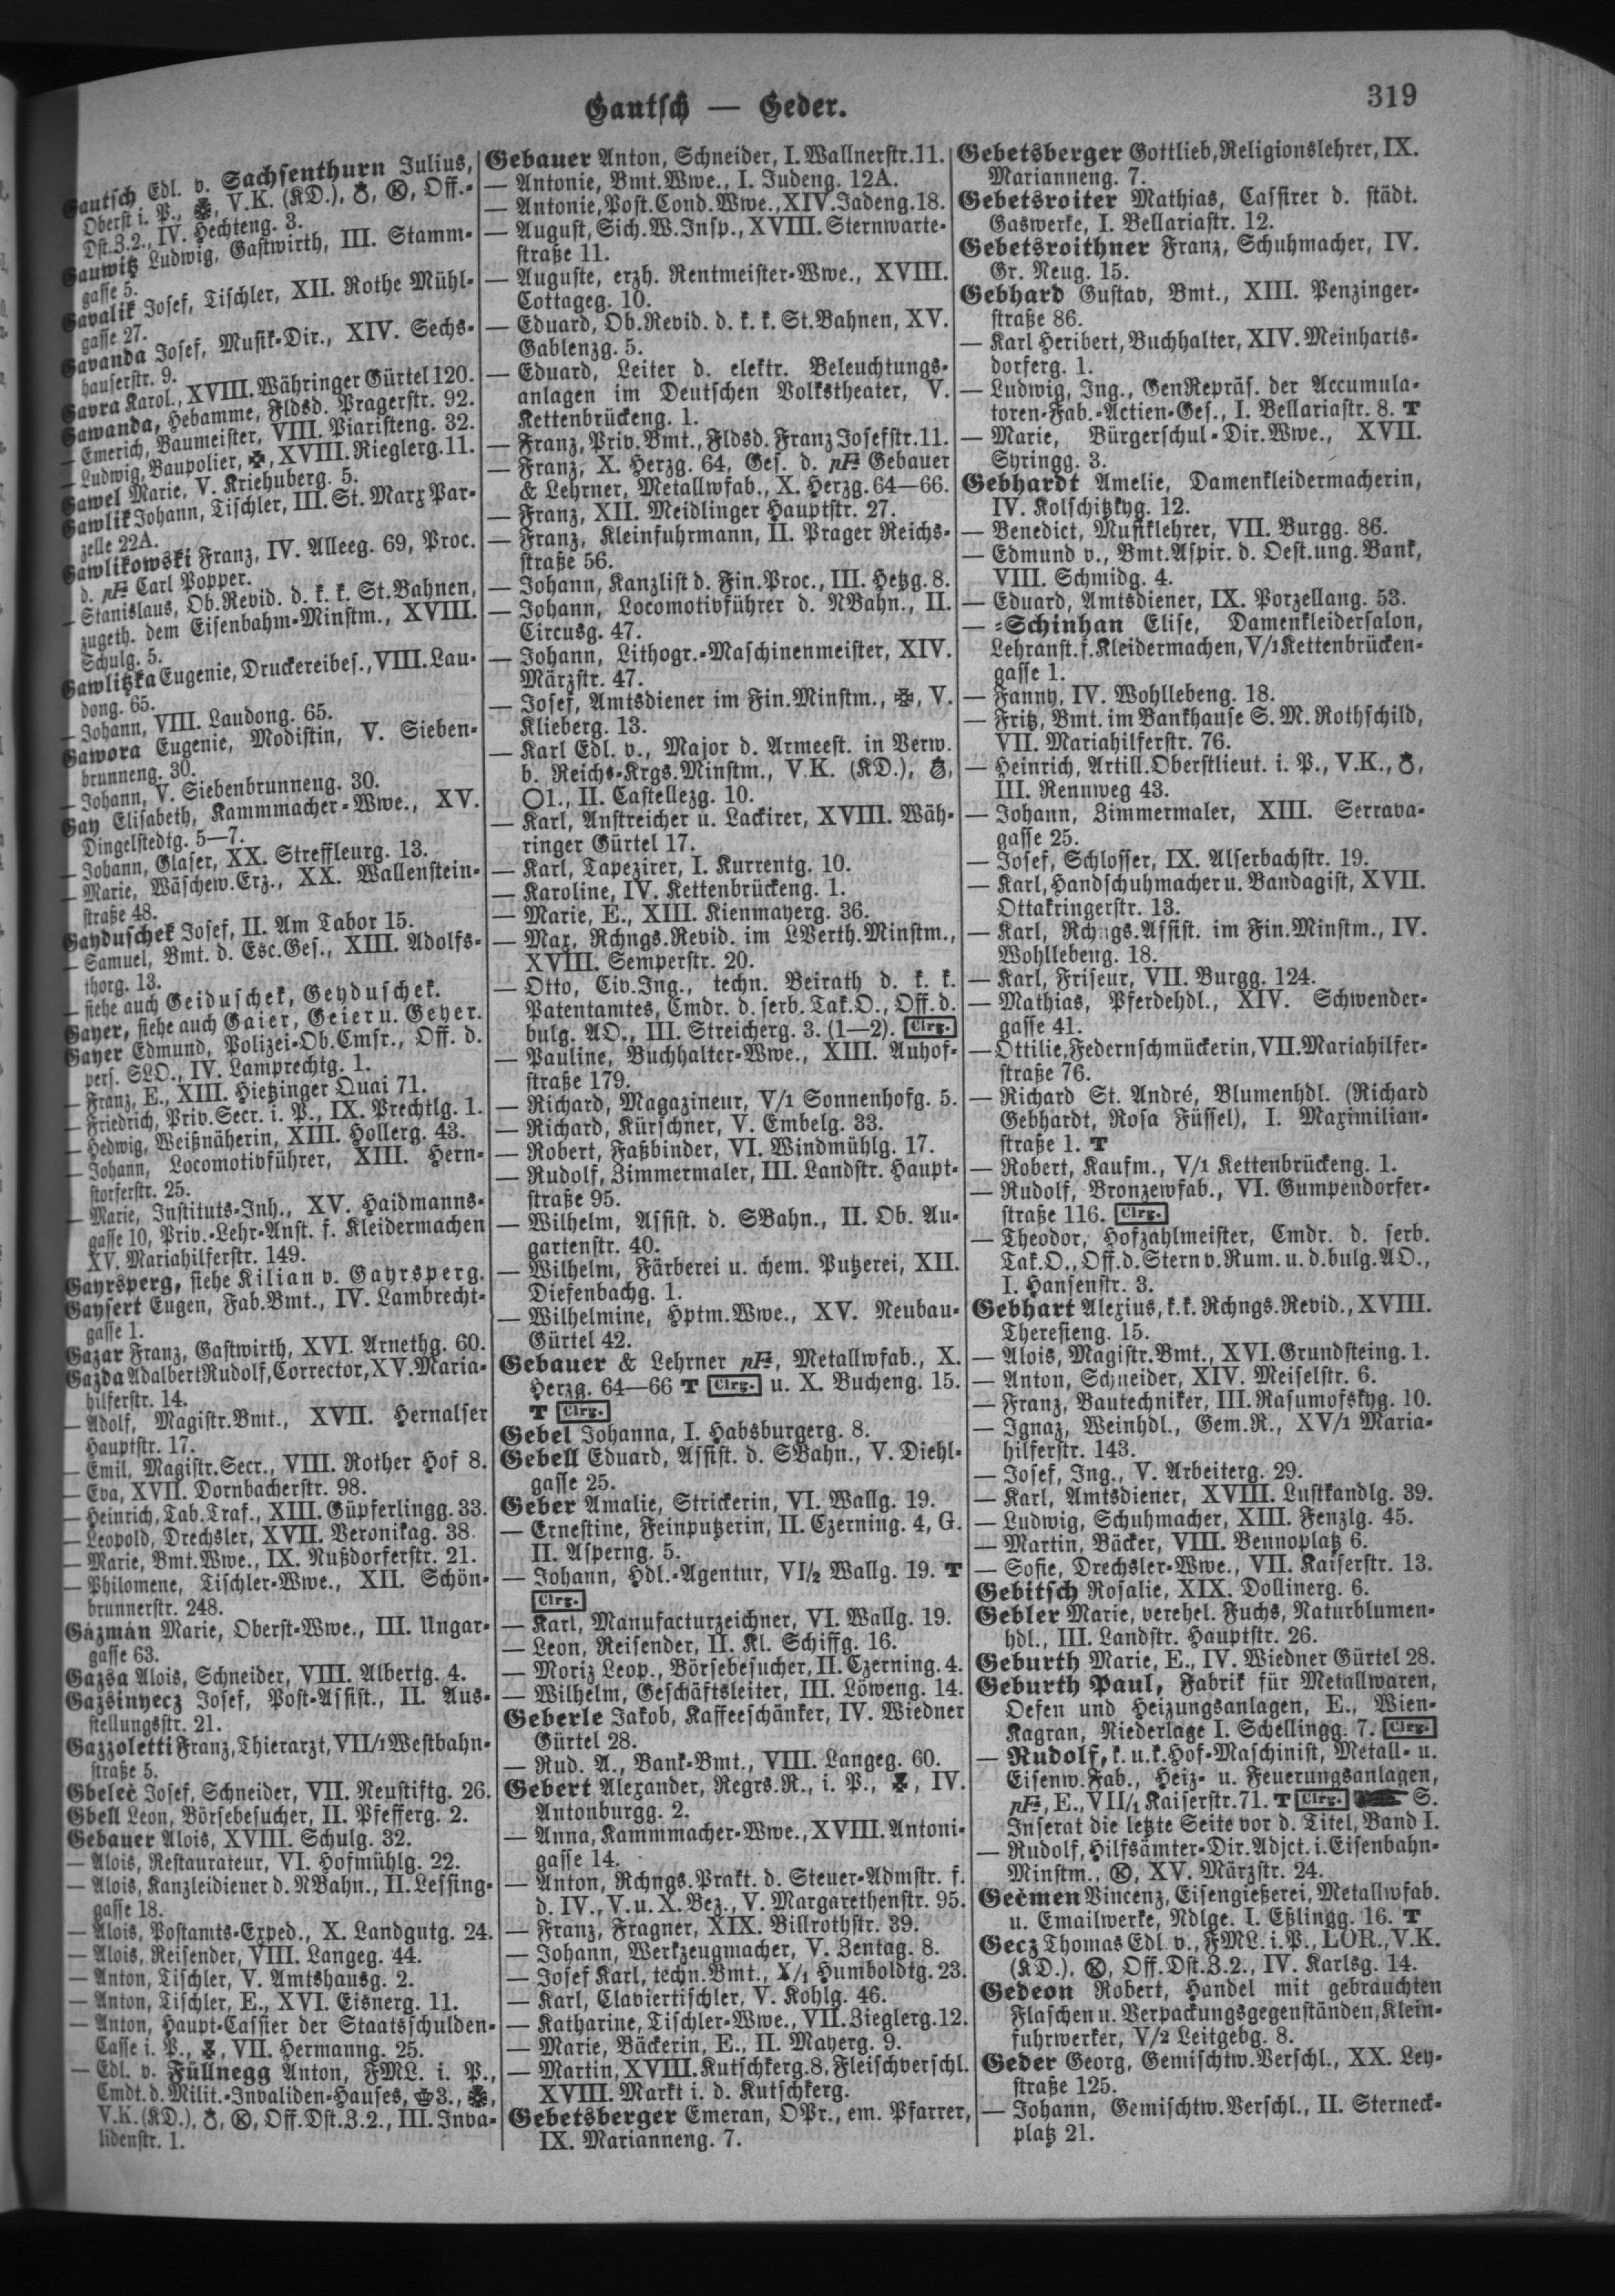 Gautsch — Geder.
319
Gautsch Edl. v. Sachsenthurn Julius,
Oberst i. P., V.K. (KD.), Ⓚ, Off.-
Dst.Z.2., IV. Hechteng. 3.
Gauwitz Ludwig, Gastwirth, III. Stamm-
gasse 5.
Gavalik Josef, Tischler, XII. Rothe Mühl-
gasse 27.
Gavanda Josef, Musik-Dir., XIV. Sechs-
hauserstr. 9.
Gavra Karol., XVIII. Währinger Gürtel 120.
Gawanda, Hebamme, Fldsd. Pragerstr. 92.
— Emerich, Baumeister, VIII. Piaristeng. 32.
— Ludwig, Baupolier, ✠, XVIII. Rieglerg. 11.
Gawel Marie, V. Kriehuberg. 5.
Gawlik Johann, Tischler, III. St. Marx Par-
zelle 22A.
Gawlikowski Franz, IV. Alleeg. 69, Proc.
d. pF Carl Popper.
— Stanislaus, Ob.Revid. d. k. k. St.Bahnen,
zugeth. dem Eisenbahm-Minstm., XVIII.
Schulg. 5.
Gawlitzka Eugenie, Druckereibes., VIII. Lau-
dong. 65.
— Johann, VIII. Laudong. 65.
Gawora Eugenie, Modistin, V. Sieben-
brunneng. 30.
— Johann, V. Siebenbrunneng. 30.
Gay Elisabeth, Kammmacher-Wwe., XV.
Dingelstedtg. 5—7.
— Johann, Glaser, XX. Streffleurg. 13.
— Marie, Wäschew.Erz., XX. Wallenstein-
straße 48.
Gayduschek Josef, II. Am Tabor 15.
— Samuel, Bmt. d. Esc.Ges., XIII. Adolfs-
thorg. 13.
— siehe auch Geiduschek, Geyduschek.
Gayer, siehe auch Gaier, Geier u. Geyer.
Gayer Edmund, Polizei-Ob.Cmsr., Off. d.
pers. SLO., IV. Lamprechtg. 1.
— Franz, E., XIII. Hietzinger Quai 71.
— Friedrich, Priv.Secr. i. P., IX. Prechtlg. 1.
— Hedwig, Weißnäherin, XIII. Hollerg. 43.
— Johann, Locomotivführer, XIII. Hern-
storferstr. 25.
— Marie, Instituts-Inh., XV. Haidmanns-
gasse 10, Priv.-Lehr-Anst. f. Kleidermachen
XV. Mariahilferstr. 149.
Gayrsperg, siehe Kilian v. Gayrsperg.
Gaysert Eugen, Fab.Bmt., IV. Lambrecht-
gasse 1.
Gazar Franz, Gastwirth, XVI. Arnethg. 60.
Gazda Adalbert Rudolf, Corrector, XV. Maria-
hilferstr. 14.
— Adolf, Magistr.Bmt., XVII. Hernalser
Hauptstr. 17.
— Emil, Magistr.Secr., VIII. Rother Hof 8.
— Eva, XVII. Dornbacherstr. 98.
— Heinrich, Tab.Traf., XIII. Güpferlingg. 33.
— Leopold, Drechsler, XVII. Veronikag. 38.
— Marie, Bmt.Wwe., IX. Nußdorferstr. 21.
— Philomene, Tischler-Wwe., XII. Schön-
brunnerstr. 248.
Gázmán Marie, Oberst-Wwe., III. Ungar-
gasse 63.
Gazsa Alois, Schneider, VIII. Albertg. 4.
Gazsinyecz Josef, Post-Assist., II. Aus-
stellungsstr. 21.
Gazzoletti Franz, Thierarzt, VII/1 Westbahn-
straße 5.
Gbeleč Josef, Schneider, VII. Neustiftg. 26.
Gbell Leon, Börsebesucher, II. Pfefferg. 2.
Gebauer Alois, XVIII. Schulg. 32.
— Alois, Restaurateur, VI. Hofmühlg. 22.
— Alois, Kanzleidiener d. NBahn., II. Lessing-
gasse 18.
— Alois, Postamts-Exped., X. Landgutg. 24.
— Alois, Reisender, VIII. Langeg. 44.
— Anton, Tischler, V. Amtshausg. 2.
— Anton, Tischler, E., XVI. Eisnerg. 11.
— Anton, Haupt-Cassier der Staatsschulden-
Casse i. P., VII. Hermanng. 25.
— Edl. v. Füllnegg Anton, FML. i. P.,
Cmdt. d. Milit.-Invaliden-Hauses, 3.,
V.K. (KD.), Ⓚ, Off.Dst.Z.2., III. Inva-
lidenstr. 1.
Gebauer Anton, Schneider, I. Wallnerstr. 11.
— Antonie, Bmt.Wwe., I. Judeng. 12A.
— Antonie, Post.Cond.Wwe., XIV. Jadeng. 18.
— August, Sich.W.Insp., XVIII. Sternwarte-
straße 11.
— Auguste, erzh. Rentmeister-Wwe., XVIII.
Cottageg. 10.
— Eduard, Ob.Revid. d. k. k. St.Bahnen, XV.
Gablenzg. 5.
— Eduard, Leiter d. elektr. Beleuchtungs-
anlagen im Deutschen Volkstheater, V.
Kettenbrückeng. 1.
— Franz, Priv.Bmt., Fldsd. Franz Josefstr. 11.
— Franz, X. Herzg. 64, Ges. d. pF Gebauer
& Lehrner, Metallwfab., X. Herzg. 64—66.
— Franz, XII. Meidlinger Hauptstr. 27.
— Franz, Kleinfuhrmann, II. Prager Reichs-
straße 56.
— Johann, Kanzlist d. Fin.Proc., III. Hetzg. 8.
— Johann, Locomotivführer d. NBahn., II.
Circusg. 47.
— Johann, Lithogr.-Maschinenmeister, XIV.
Märzstr. 47.
— Josef, Amtsdiener im Fin.Minstm., ✠, V.
Klieberg. 13.
— Karl Edl. v., Major d. Armeest. in Verw.
b. Reichs-Krgs.Minstm., V.K. (KD.),
O1., II. Castellezg. 10.
— Karl, Anstreicher u. Lackirer, XVIII. Wäh-
ringer Gürtel 17.
— Karl, Tapezirer, I. Kurrentg. 10.
— Karoline, IV. Kettenbrückeng. 1.
— Marie, E., XIII. Kienmayerg. 36.
— Max, Rchngs.Revid. im LVerth.Minstm.,
XVIII. Semperstr. 20.
— Otto, Civ.Ing., techn. Beirath d. k. k.
Patentamtes, Cmdr. d. serb. Tak.O., Off. d.
bulg. AO., III. Streicherg. 3. (1—2). Clrg.
— Pauline, Buchhalter-Wwe., XIII. Auhof-
straße 179.
— Richard, Magazineur, V/1 Sonnenhofg. 5.
— Richard, Kürschner, V. Embelg. 33.
— Robert, Faßbinder, VI. Windmühlg. 17.
— Rudolf, Zimmermaler, III. Landstr. Haupt-
straße 95.
— Wilhelm, Assist. d. SBahn., II. Ob. Au-
gartenstr. 40.
— Wilhelm, Färberei u. chem. Putzerei, XII.
Diefenbachg. 1.
— Wilhelmine, Hptm.Wwe., XV. Neubau-
Gürtel 42.
Gebauer & Lehrner pF, Metallwfab., X.
Herzg. 64—66 T Clrg. u. X. Bucheng. 15.
T Clrg.
Gebel Johanna, I. Habsburgerg. 8.
Gebell Eduard, Assist. d. SBahn., V. Diehl-
gasse 25.
Geber Amalie, Strickerin, VI. Wallg. 19.
— Ernestine, Feinputzerin, II. Czerning. 4, G.
II. Asperng. 5.
— Johann, Hdl.-Agentur, VI/2 Wallg. 19. T
Clrg.
— Karl, Manufacturzeichner, VI. Wallg. 19.
— Leon, Reisender, II. Kl. Schiffg. 16.
— Moriz Leop., Börsebesucher, II. Czerning. 4.
— Wilhelm, Geschäftsleiter, III. Löweng. 14.
Geberle Jakob, Kaffeeschänker, IV. Wiedner
Gürtel 28.
— Rud. A., Bank-Bmt., VIII. Langeg. 60.
Gebert Alexander, Regrs.R., i. P., IV.
Antonburgg. 2.
— Anna, Kammmacher-Wwe., XVIII. Antoni-
gasse 14.
— Anton, Rchngs.Prakt. d. Steuer-Admstr. f.
d. IV., V. u. X. Bez., V. Margarethenstr. 95.
— Franz, Fragner, XIX. Billrothstr. 39.
— Johann, Werkzeugmacher, V. Zentag. 8.
— Josef Karl, techn.Bmt., X/1 Humboldtg. 23.
— Karl, Claviertischler, V. Kohlg. 46.
— Katharine, Tischler-Wwe., VII. Zieglerg. 12.
— Marie, Bäckerin, E., II. Mayerg. 9.
— Martin, XVIII. Kutschkerg. 8, Fleischverschl.
XVIII. Markt i. d. Kutschkerg.
Gebetsberger Emeran, OPr., em. Pfarrer,
IX. Marianneng. 7.
Gebetsberger Gottlieb, Religionslehrer, IX.
Marianneng. 7.
Gebetsroiter Mathias, Cassirer d. städt.
Gaswerke, I. Bellariastr. 12.
Gebetsroithner Franz, Schuhmacher, IV.
Gr. Neug. 15.
Gebhard Gustav, Bmt., XIII. Penzinger-
straße 86.
— Karl Heribert, Buchhalter, XIV. Meinharts-
dorferg. 1.
— Ludwig, Ing., GenRepräs. der Accumula-
toren-Fab.-Actien-Ges., I. Bellariastr. 8. T
— Marie, Bürgerschul-Dir.Wwe., XVII.
Syringg. 3.
Gebhardt Amelie, Damenkleidermacherin,
IV. Kolschitzkyg. 12.
— Benedict, Musiklehrer, VII. Burgg. 86.
— Edmund v., Bmt.Aspir. d. Oest.ung. Bank,
VIII. Schmidg. 4.
— Eduard, Amtsdiener, IX. Porzellang. 53.
— -Schinhan Elise, Damenkleidersalon,
Lehranst. f. Kleidermachen, V/1 Kettenbrücken-
gasse 1.
— Fanny, IV. Wohllebeng. 18.
— Fritz, Bmt. im Bankhause S. M. Rothschild,
VII. Mariahilferstr. 76.
— Heinrich, Artill.Oberstlieut. i. P., V.K.,
III. Rennweg 43.
— Johann, Zimmermaler, XIII. Serrava-
gasse 25.
— Josef, Schlosser, IX. Alserbachstr. 19.
— Karl, Handschuhmacher u. Bandagist, XVII.
Ottakringerstr. 13.
— Karl, Rchngs.Assist. im Fin.Minstm., IV.
Wohllebeng. 18.
— Karl, Friseur, VII. Burgg. 124.
— Mathias, Pferdehdl., XIV. Schwender-
gasse 41.
— Ottilie, Federnschmückerin, VII. Mariahilfer-
straße 76.
— Richard St. André, Blumenhdl. (Richard
Gebhardt, Rosa Füssel), I. Maximilian-
straße 1. T
— Robert, Kaufm., V/1 Kettenbrückeng. 1.
— Rudolf, Bronzewfab., VI. Gumpendorfer-
straße 116. Clrg.
— Theodor, Hofzahlmeister, Cmdr. d. serb.
Tak.O., Off. d. Stern v. Rum. u. d. bulg. AO.,
I. Hansenstr. 3.
Gebhart Alexius, k.k. Rchngs.Revid., XVIII.
Theresieng. 15.
— Alois, Magistr.Bmt., XVI. Grundsteing. 1.
— Anton, Schneider, XIV. Meiselstr. 6.
— Franz, Bautechniker, III. Rasumofskyg. 10.
— Ignaz, Weinhdl., Gem.R., XV/1 Maria-
hilferstr. 143.
— Josef, Ing., V. Arbeiterg. 29.
— Karl, Amtsdiener, XVIII. Lustkandlg. 39.
— Ludwig, Schuhmacher, XIII. Fenzlg. 45.
— Martin, Bäcker, VIII. Bennoplatz 6.
— Sofie, Drechsler-Wwe., VII. Kaiserstr. 13.
Gebitsch Rosalie, XIX. Dollinerg. 6.
Gebler Marie, verehel. Fuchs, Naturblumen-
hdl., III. Landstr. Hauptstr. 26.
Geburth Marie, E., IV. Wiedner Gürtel 28.
Geburth Paul, Fabrik für Metallwaren,
Oefen und Heizungsanlagen, E., Wien-
Kagran, Niederlage I. Schellingg. 7. Clrg.
— Rudolf, k. u. k. Hof-Maschinist, Metall- u.
Eisenw.Fab., Heiz- u. Feuerungsanlagen,
pF, E., VII/1 Kaiserstr. 71. T Clrg. S.
Inserat die letzte Seite vor d. Titel, Band I.
— Rudolf, Hilfsämter-Dir.Adjct. i. Eisenbahn-
Minstm., Ⓚ, XV. Märzstr. 24.
Gečmen Vincenz, Eisengießerei, Metallwfab.
u. Emailwerke, Ndlge. I. Eßlingg. 16. T
Gecz Thomas Edl. v., FML. i. P., LOR., V.K.
(KD.), Ⓚ, Off.Dst.Z.2., IV. Karlsg. 14.
Gedeon Robert, Handel mit gebrauchten
Flaschen u. Verpackungsgegenständen, Klein-
fuhrwerker, V/2 Leitgebg. 8.
Geder Georg, Gemischtw.Verschl., XX. Ley-
straße 125.
— Johann, Gemischtw.Verschl., II. Sterneck-
platz 21.